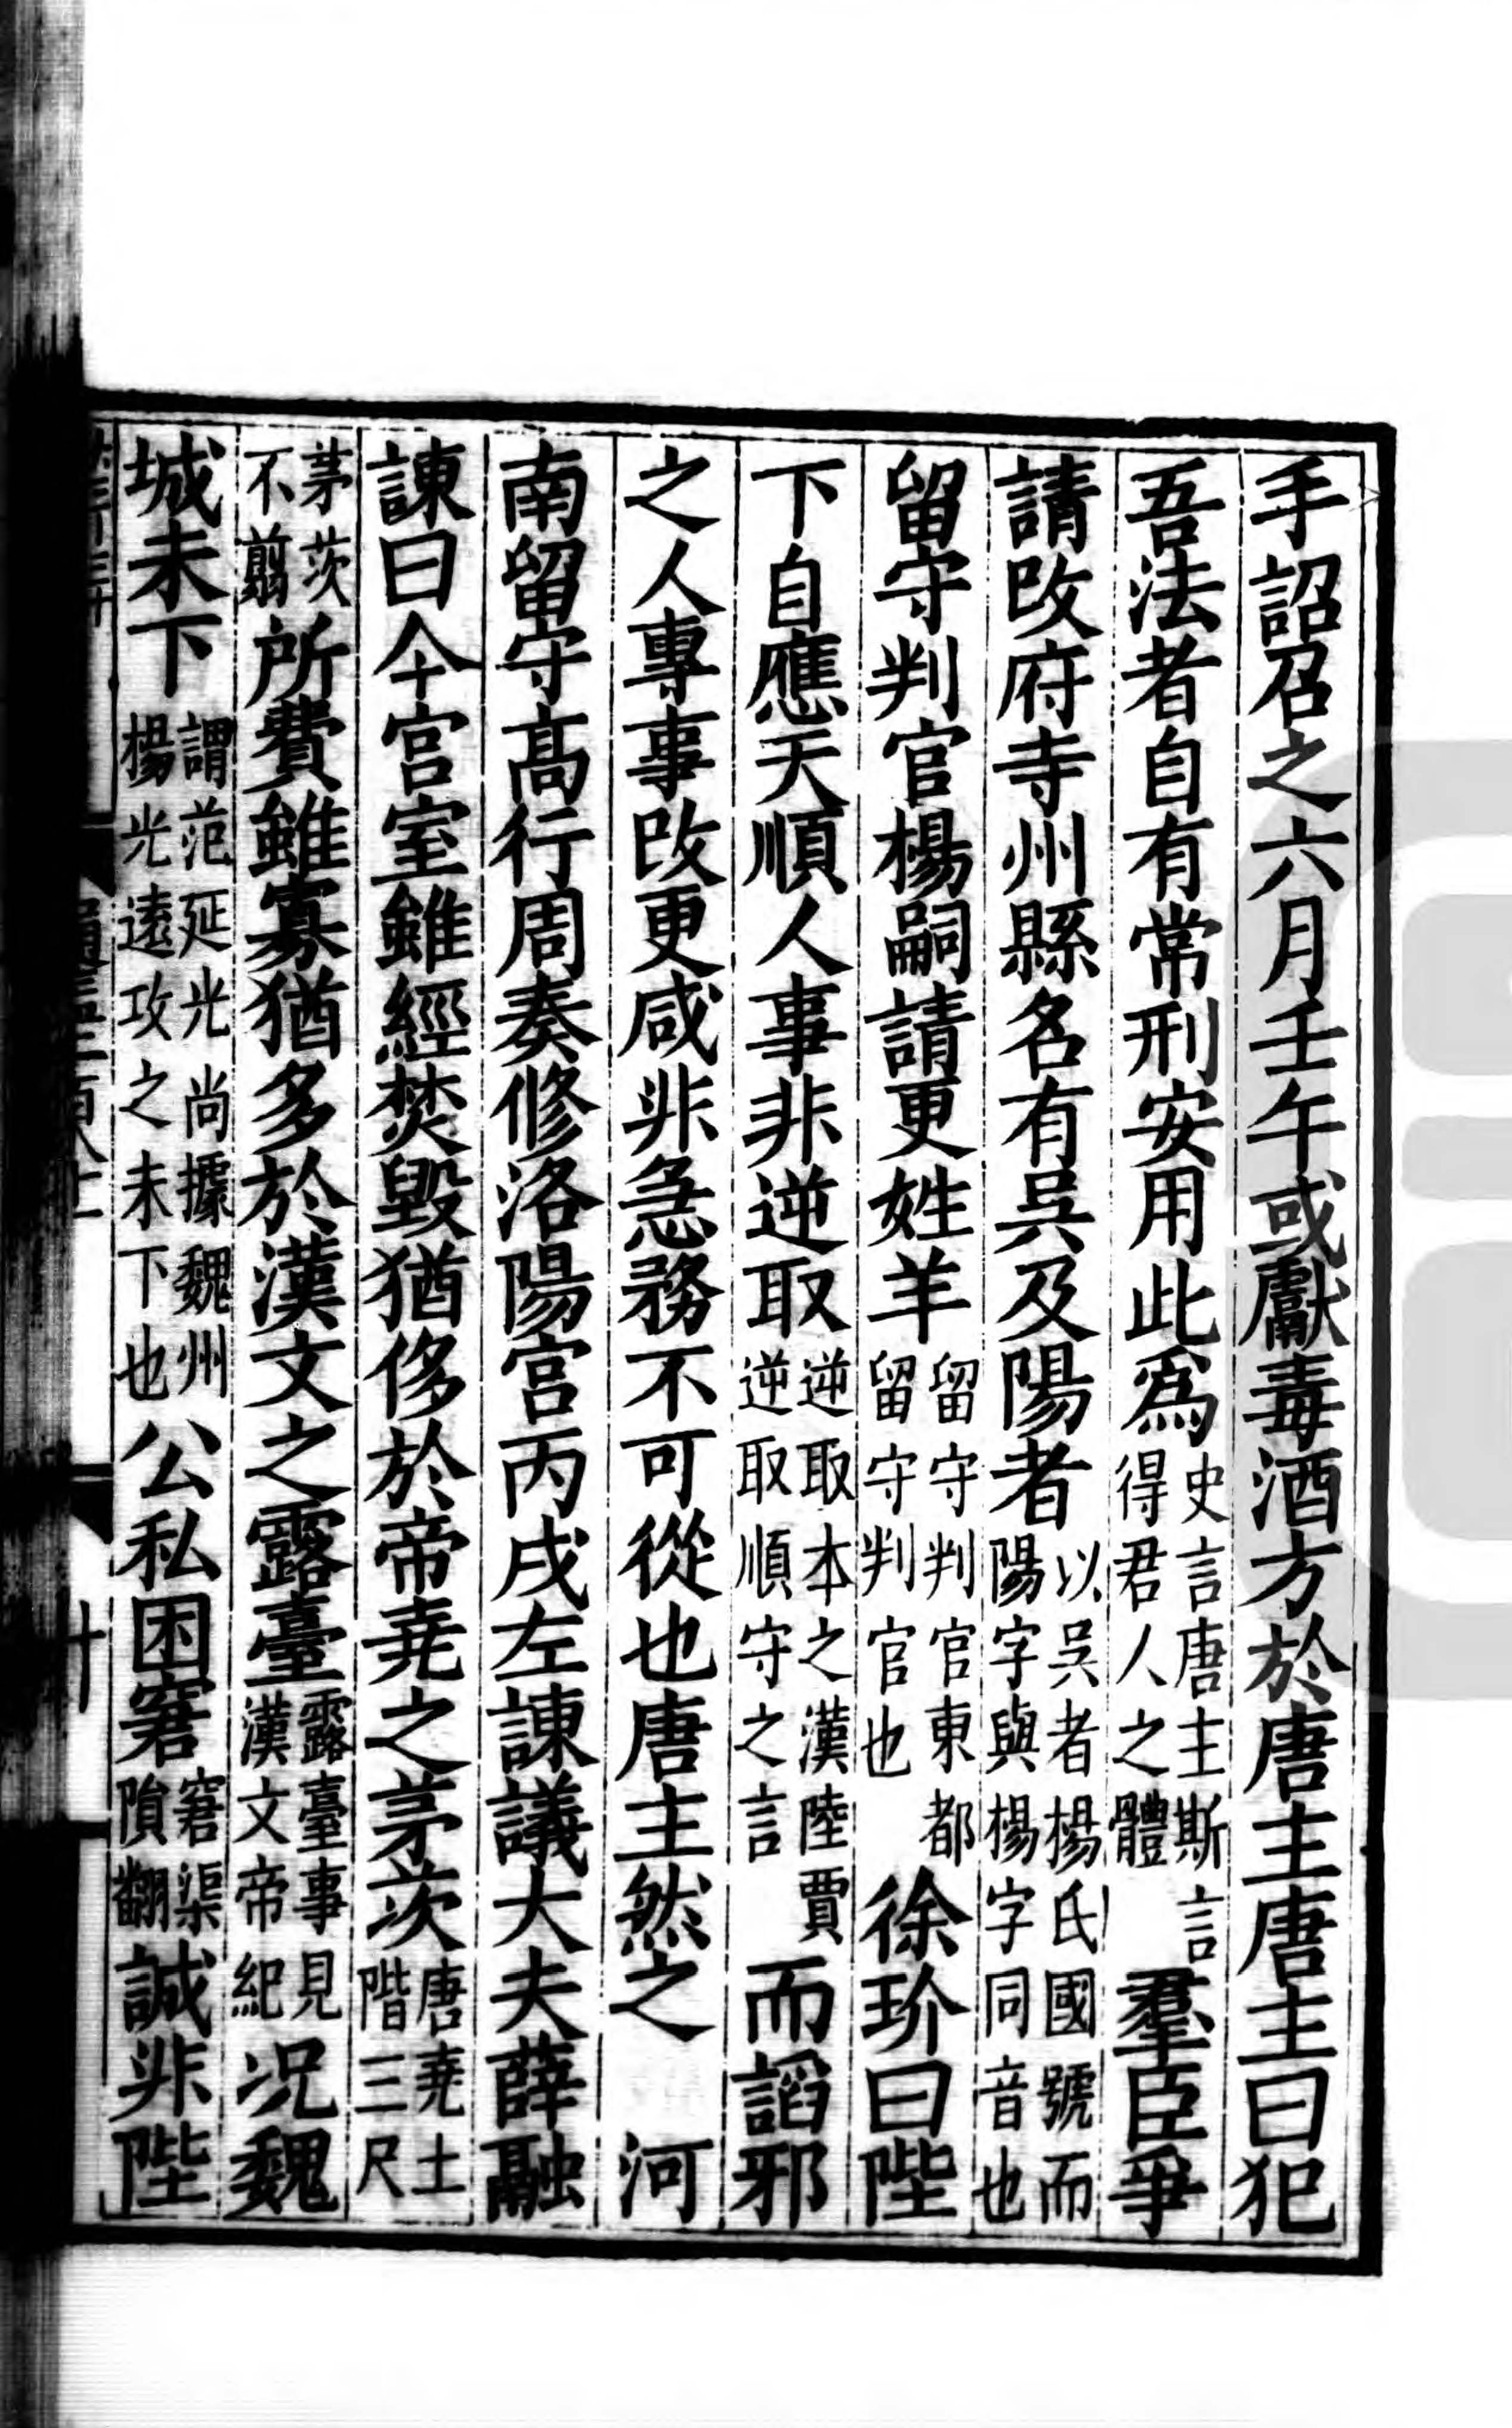 手詔召之六月壬午或獻毒酒方於唐主唐主曰犯
吾法者自有常刑安用此爲史言唐主斯言得君人之體羣臣爭
請改府寺州縣名有吳及陽者以吳者楊氏國號而陽字與楊字同音也
留守判官楊嗣請更姓羊留守判官東都留守判官也徐玠曰陛
下自應天順人事非逆取逆取本之漢陸賈逆取順守之言而諂邪
之人專事改更咸非急務不可從也唐主然之　河
南留守高行周奏修洛陽宮丙戌左諫議大夫薛融
諫曰今宮室雖經焚毀猶侈於帝堯之茅茨唐堯土階三尺
茅茨不翦所費雖寡猶多於漢文之露臺露臺事見漢文帝紀况魏
城未下謂范延光尚據魏州楊光遠攻之未下也公私困窘窘渠隕翻誠非陛